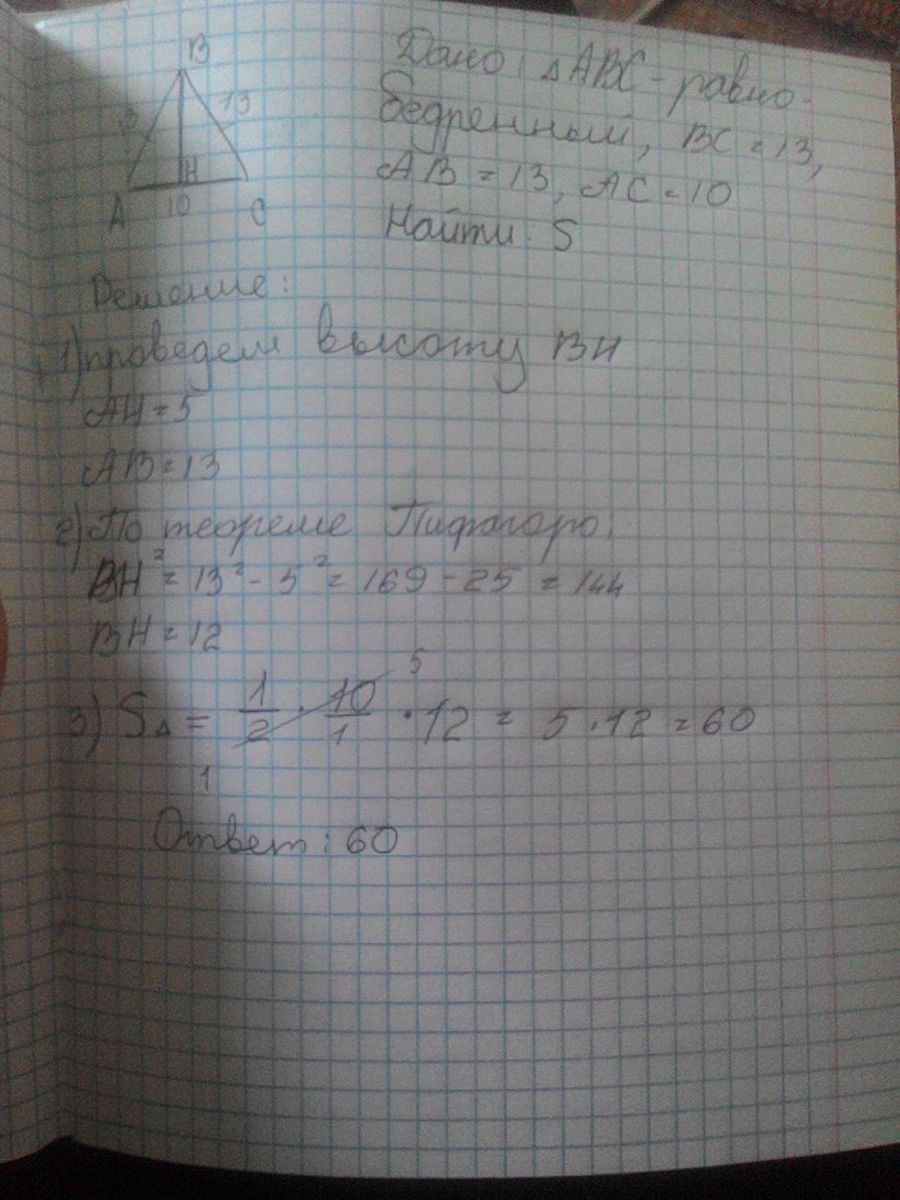 B
13
H
A 10 C
Дано: △ABC - равно-
бедренный, BC = 13,
AB = 13, AC = 10
Найти: S
Решение:
1) проведем высоту BH
AH = 5
AB = 13
2) По теореме Пифагора:
BH² = 13² - 5² = 169 - 25 = 144
BH = 12
3) S△ = 1/2 · 10/1 · 12 = 5 · 12 = 60
5
1
Ответ: 60